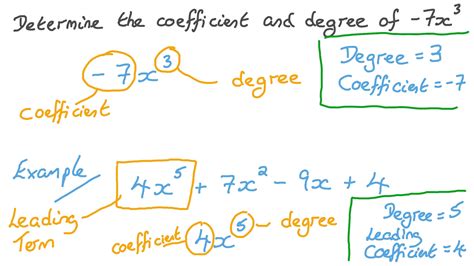 Determine the coefficient and degree of -7x³
-7x³ degree
Coefficient
Degree = 3
Coefficient = -7
Example
4x⁵ + 7x² - 9x + 4
Leading
Term
coefficient 4x⁵ - degree
Degree = 5
Leading
Coefficient = 4